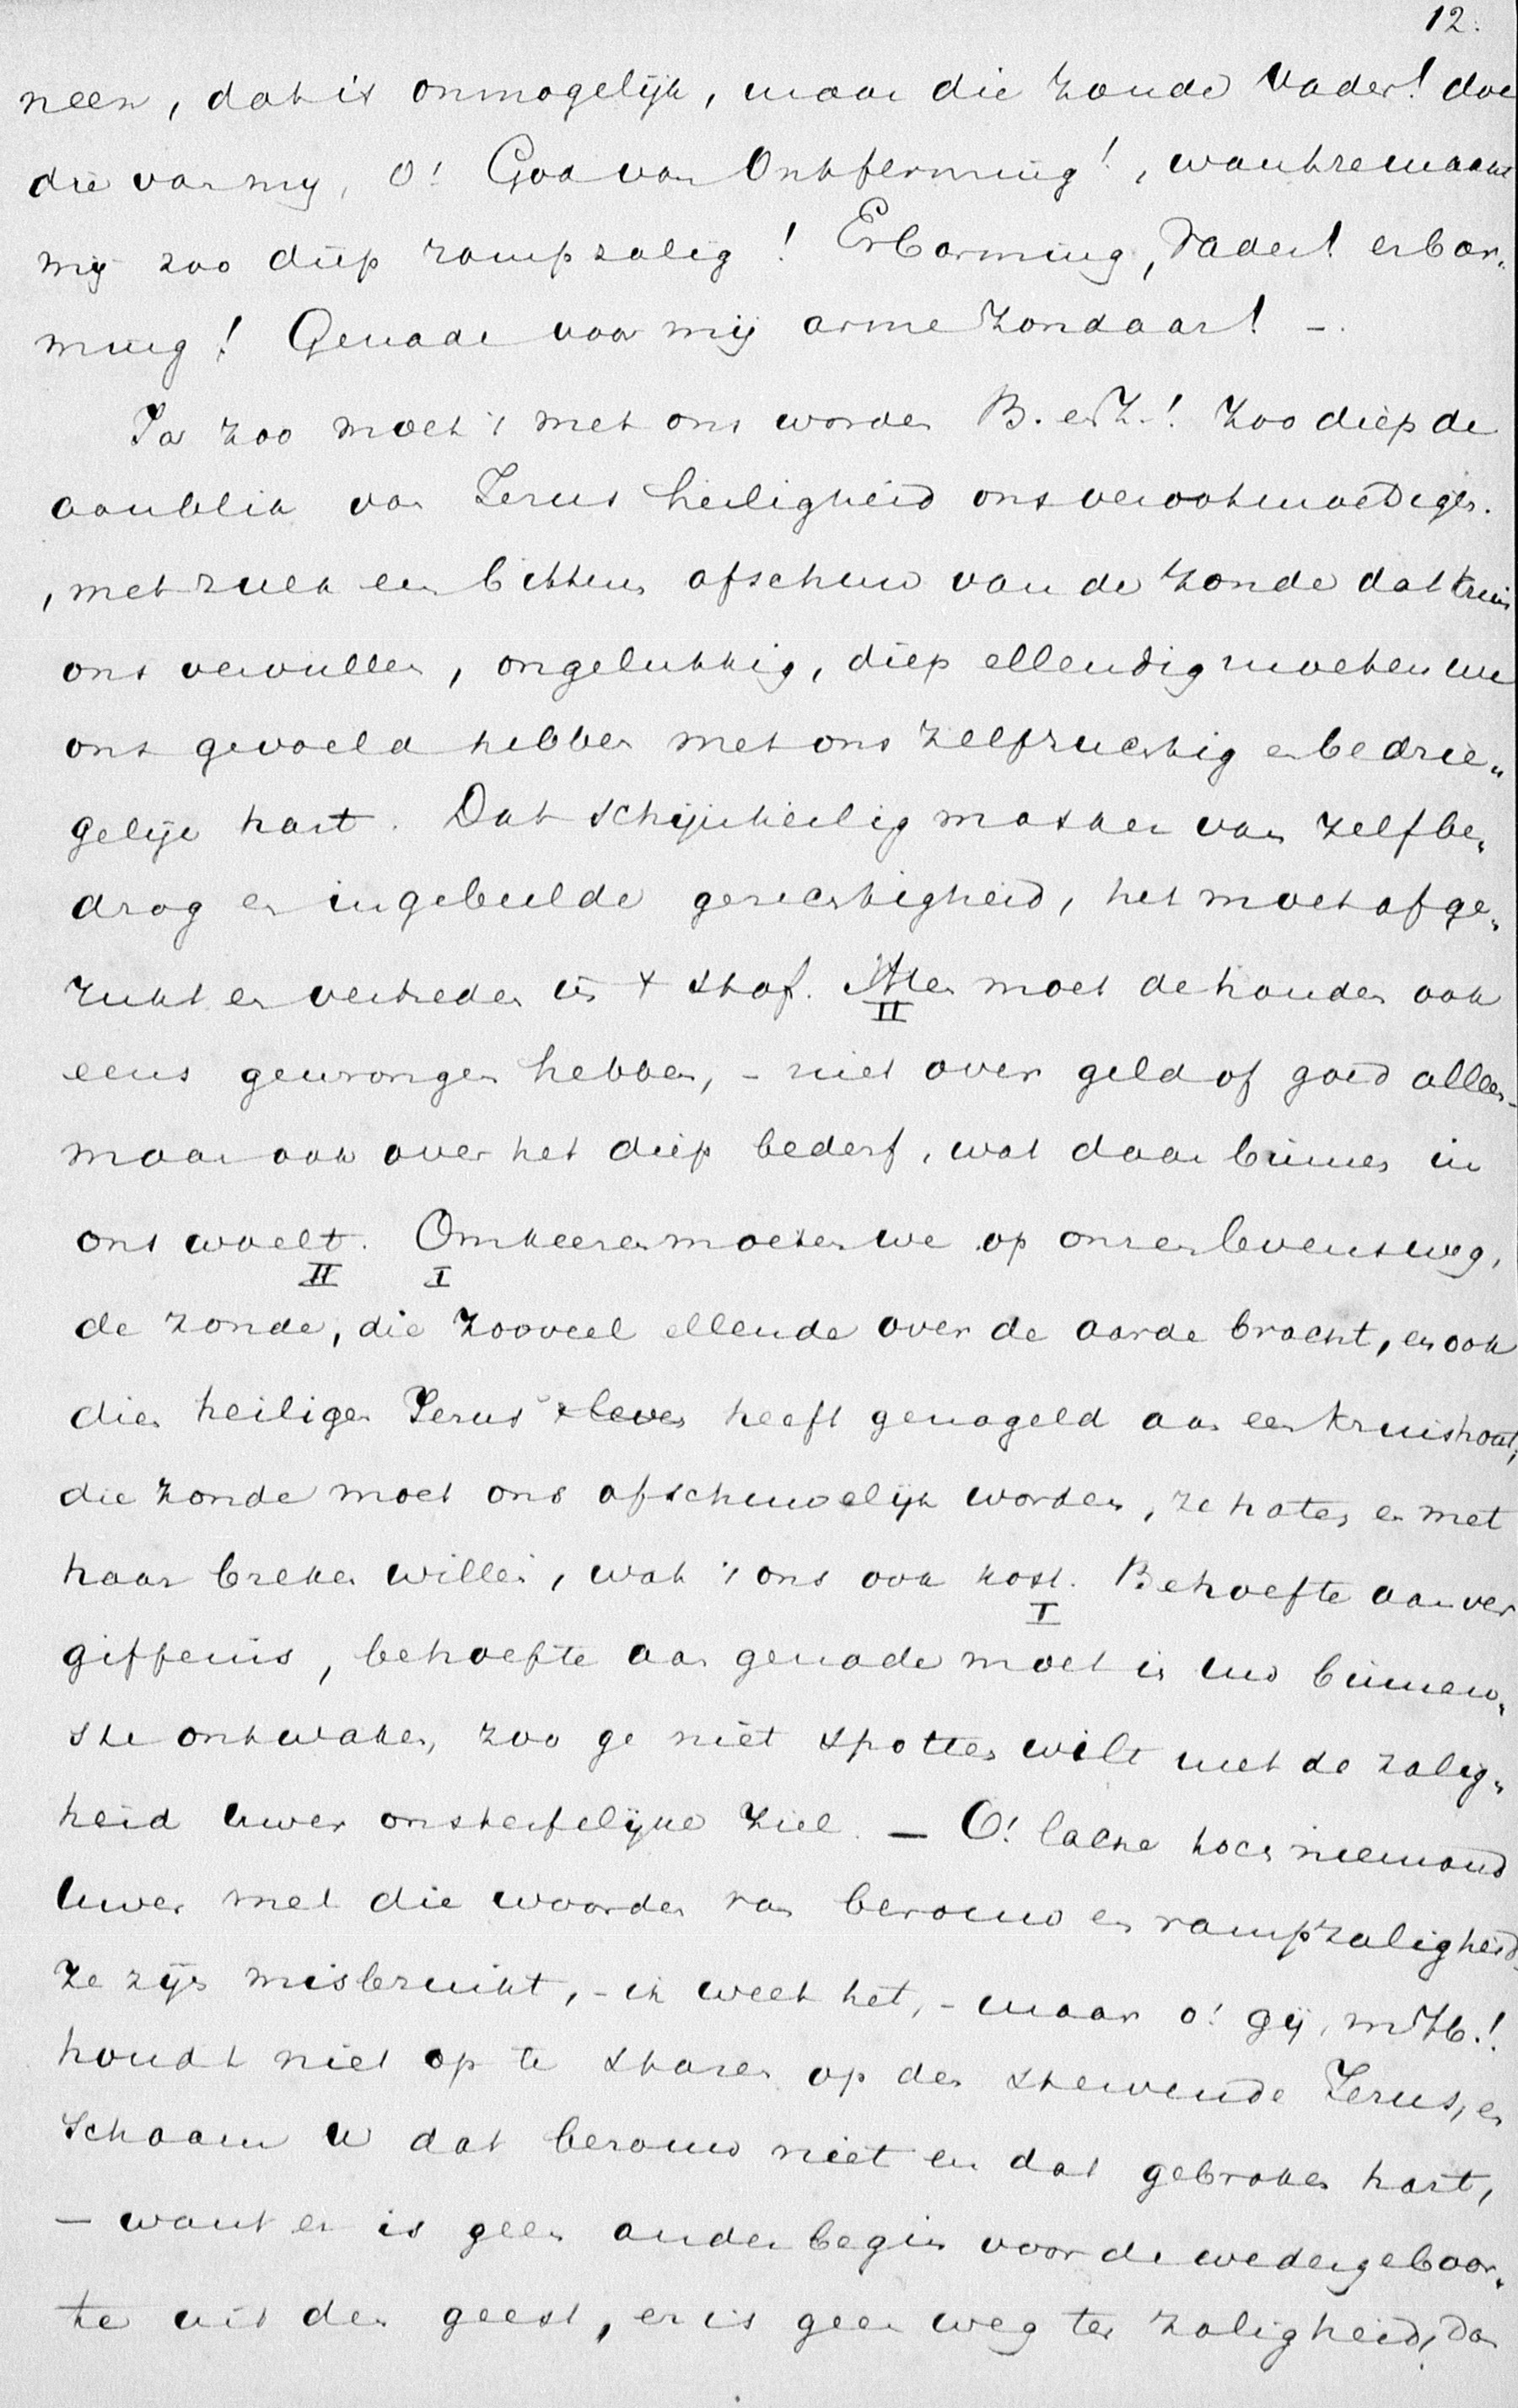 12.
neen, dat is onmogelijk, maar die zonde Vader! doe
die van mij, O! God van Ontferming!, want ze maakt
mij zoo diep rampzalig! Erbarming, Vader! erbar„
ming! Genade voor mij arme zondaar! –.
Ja zoo moet 't met ons worden B. en Z.! Zoo diep de
aanblik van Jezus heiligheid ons verootmoedigen.
, met zulk een bittere afschuw van de zonde dat kruis
ons vervullen, ongelukkig, diep ellendig moeten we
ons gevoeld hebben met ons zelfzuchtig en bedrie„
gelijk hart. Dat schijnheilig masker van zelfbe„
drog en ingebeelde gerechtigheid, het moet afge„
rukt en vertreden in 't stof. Men moet de handen ook
II
eens gewrongen hebben, – niet over geld of goed alleen –
maar ook over het diep bederf, wat daar binnen in
ons woelt. Omkeeren moeten we op onzen levensweg,
II I
de zonde, die zooveel ellende over de aarde bracht, en ook
dien heiligen Jezus leven heeft genageld aan een kruishout,
die zonde moet ons afschuwelijk worden, ze haten en met
haar breken willen, wat 't ons ook kost. Behoefte aan ver
I
giffenis, behoefte aan genade moet in uw binnen„
ste ontwaken, zoo ge niet spotten wilt met de zalig„
heid uwer onsterfelijke ziel. – O! lache toch niemand
uwer met die woorden van berouw en rampzaligheid.
Ze zijn misbruikt, – ik weet het, – maar o! gij, m.H.!
houdt niet op te staren op den stervende Jezus, en
schaam u dat berouw niet en dat gebroken hart,
– want er is geen ander begin voor de wedergeboor„
te uit den geest, er is geen weg ter zaligheid, dan